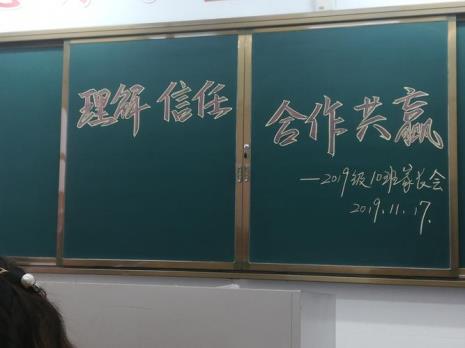 理解 信任 合作共赢
—2019级10班家长会
2019.11.17.